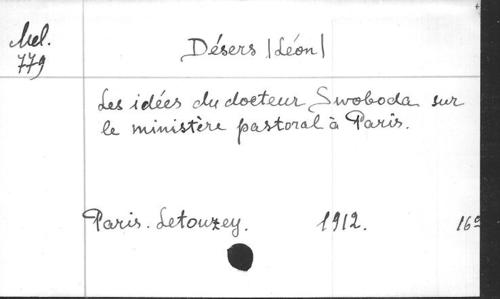 Mel.
779
Désers (Léon)
Les idées du docteur Swoboda sur
le ministère pastoral à Paris.
Paris. Letouzey. 1912. 16º